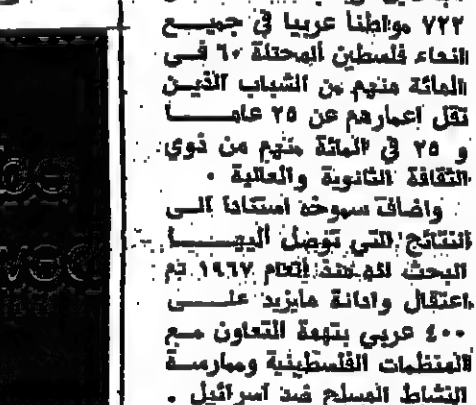 ٧٢٢ مواطنا عربيا في جميع
انحاء فلسطين المحتلة ٦٠ في
المائة منهم من الشباب الذين
تقل اعمارهم عن ٢٥ عاما
و ٢٥ في المائة منهم من ذوي
الثقافة الثانوية والعالية .
واضاف سموحه استنادا الى
النتائج التي توصل اليها
البحث انه منذ العام ١٩٦٧ تم
اعتقال وادانة مايزيد على
٤٠٠ عربي بتهمة التعاون مع
المنظمات الفلسطينية وممارسة
النشاط المسلح ضد اسرائيل .